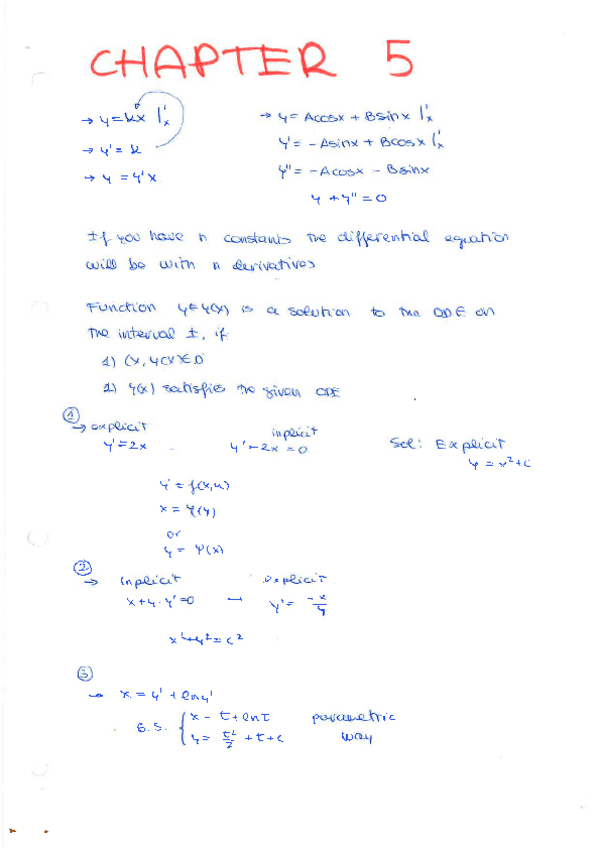 CHAPTER 5
→ y = kx |'x
→ y' = k
→ y = y'x
→ y = Acosx + Bsinx |'x
y' = -Asinx + Bcosx |'x
y'' = -Acosx - Bsinx
y + y'' = 0
If you have n constants the differential equation
will be with n derivatives
Function y=y(x) is a solution to the ODE on
the interval I, if
1) (x, y(x))∈D
2) y(x) satisfies the given ODE
①
→ explicit inplicit Sol: Explicit
y' = 2x y' - 2x = 0 y = x² + c
y' = f(x,u)
x = φ(y)
or
y = φ(x)
②
→ Inplicit explicit
x + y · y' = 0 → y' = -x/y
x² + y² = c²
③
→ x = y' + lny'
G.S. { x = t + lnt parametric
y = t²/2 + t + c way